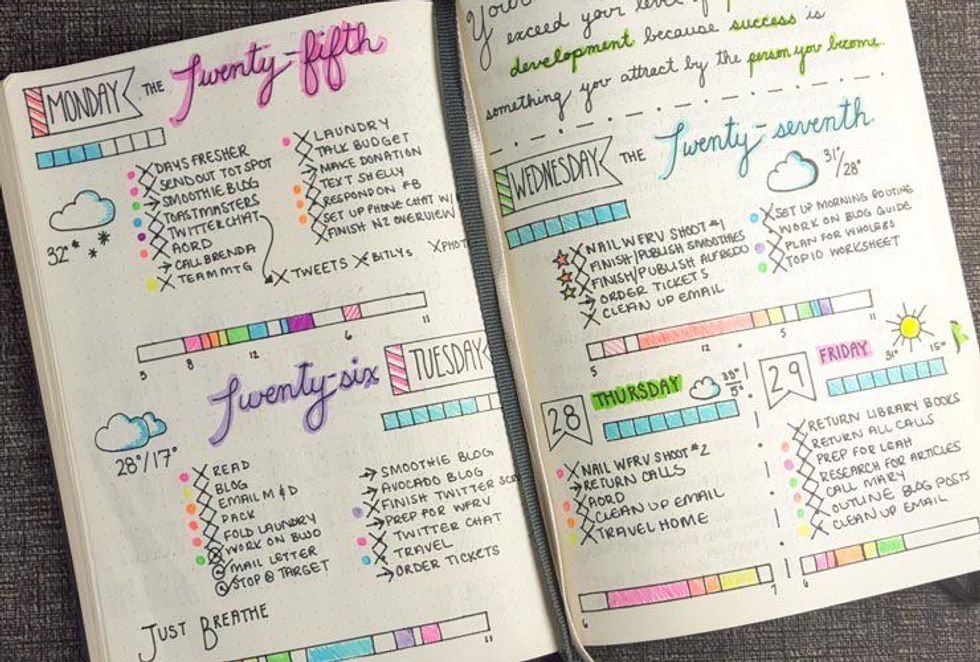 MONDAY THE Twenty-fifth
DAYS FRESHER
SEND OUT TOTSPOT
SMOOTHIE BLOG
TOASTMASTERS
TWITTER CHAT
AORD
CALL BRENDA
TEAM MTG
LAUNDRY
TALK BUDGET
MAKE DONATION
TEXT SHELLY
RESPOND ON FB
SET UP PHONE CHAT W/
FINISH NZ OVERVIEW
32°
TWEETS BITLYS PHOT
5 8 12 6 11
Twenty-six TUESDAY
28°/17°
READ
BLOG
EMAIL M&D
PACK
FOLD LAUNDRY
WORK ON BUJO
MAIL LETTER
STOP @ TARGET
SMOOTHIE BLOG
AVOCADO BLOG
FINISH TWITTER
PREP FOR WFRV
TWITTER CHAT
TRAVEL
ORDER TICKETS
JUST BREATHE
11
exceed your level of
development because success is
something you attract by the person you become.
WEDNESDAY THE Twenty-seventh
31°/28°
NAIL WFRV SHOOT #1
FINISH/PUBLISH SMOOTHIES
FINISH/PUBLISH ALFREDO
ORDER TICKETS
CLEAN UP EMAIL
SET UP MORNING ROUTINE
WORK ON BLOG GUIDE
PLAN FOR WHOLE30
TOP 10 WORKSHEET
5 12 5 11
28 THURSDAY
NAIL WFRV SHOOT #2
RETURN CALLS
AORD
CLEAN UP EMAIL
TRAVEL HOME
6
29 FRIDAY
31° 15°
RETURN LIBRARY BOOKS
RETURN ALL CALLS
PREP FOR LEAH
RESEARCH FOR ARTICLES
CALL MARY
OUTLINE BLOG POSTS
CLEAN UP EMAIL
6